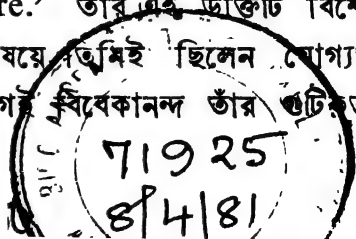 fe." তাঁর এই উক্তিটি বিশে
ষয়ে তিনিই ছিলেন যোগ্য
বিবেকানন্দ তাঁর
71925
8/4/81